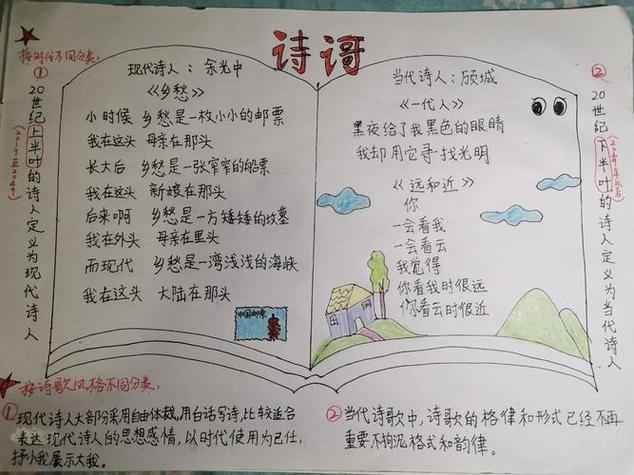 诗哥
按时代不同分类:
①
20世纪上半叶的诗人定义为现代诗人
现代诗人:余光中
《乡愁》
小时候 乡愁是一枚小小的邮票
我在这头 母亲在那头
长大后 乡愁是一张窄窄的船票
我在这头 新娘在那头
后来啊 乡愁是一方矮矮的坟墓
我在外头 母亲在里头
而现代 乡愁是一湾浅浅的海峡
我在这头 大陆在那头
中国邮票
当代诗人:顾城
《一代人》
黑夜给了我黑色的眼睛
我却用它寻找光明
《远和近》
你
一会看我
一会看云
我觉得
你看我时很远
你看云时很近
②
20世纪下半叶的诗人定义为当代诗人
按诗歌风格不同分类:
①现代诗人大部分采用自由体裁,用白话写诗,比较适合
表达现代诗人的思想感情,以时代使用为己任,
抒小我展示大我。
②当代诗歌中,诗歌的格律和形式已经不再
重要不拘泥格式和韵律。